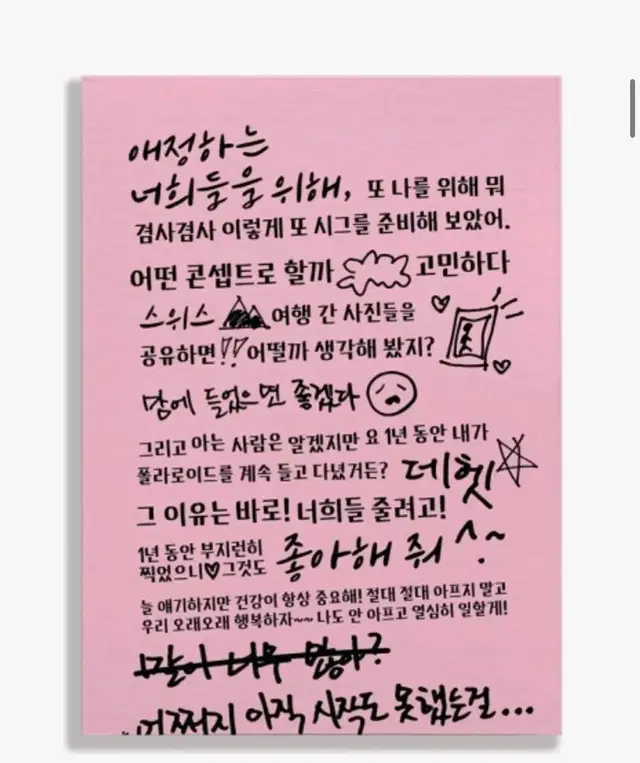 애정하는
너희들을 위해, 또 나를 위해 뭐
겸사겸사 이렇게 또 시그를 준비해 보았어.
어떤 콘셉트로 할까 고민하다
스위스 여행 간 사진들을
공유하면!! 어떨까 생각해 봤지?
맘에 들었으면 좋겠다
그리고 아는 사람은 알겠지만 요 1년 동안 내가
폴라로이드를 계속 들고 다녔거든? 데헷
그 이유는 바로! 너희들 줄려고!
1년 동안 부지런히
찍었으니♥그것도 좋아해 줘 ^.~
늘 얘기하지만 건강이 항상 중요해! 절대 절대 아프지 말고
우리 오래오래 행복하자~~ 나도 안 아프고 열심히 일할게!
말이 너무 많아?
어쩌지 아직 시작도 못했는걸...